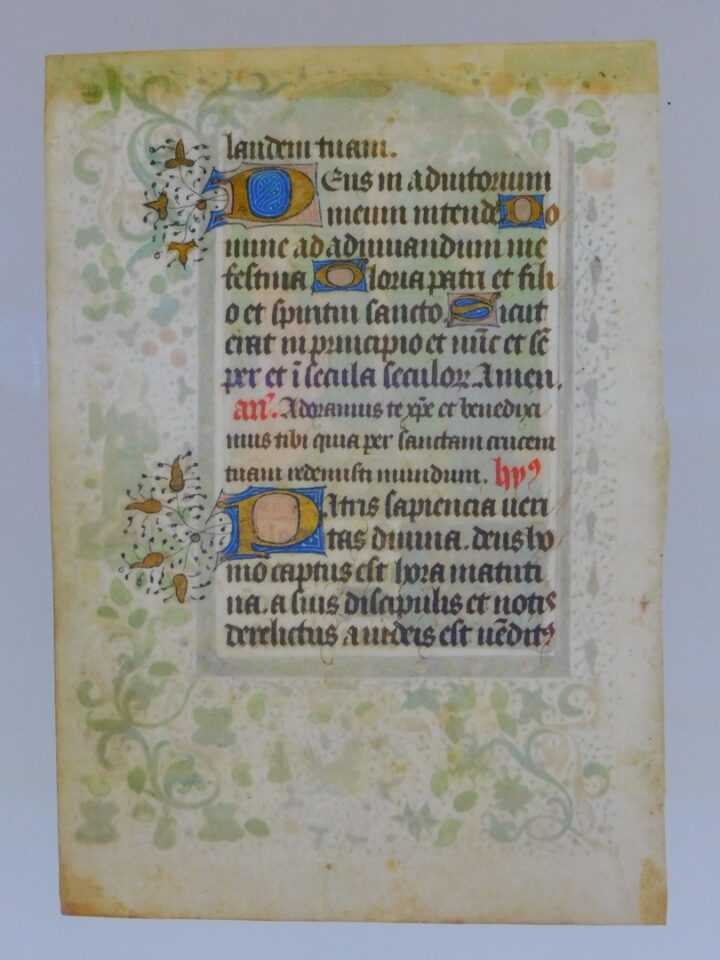 laudem tuam.
Deus in adiutorium
meum intende Do
mine ad adiuuandum me
festina Gloria patri et fili
o et spiritui sancto. Sicut
erat in principio et nūc et sē
per et ī secula seculoꝝ Amen.
an̄. Adoramus te xp̄e et benedixi
mus tibi quia per sanctam crucem
tuam redemisti mundum. hyꝰ
Patris sapiencia ueri
tas diuina. deus ho
mo captus est hora matuti
na. a suis discipulis et notis
derelictus a iudeis est uēditꝰ